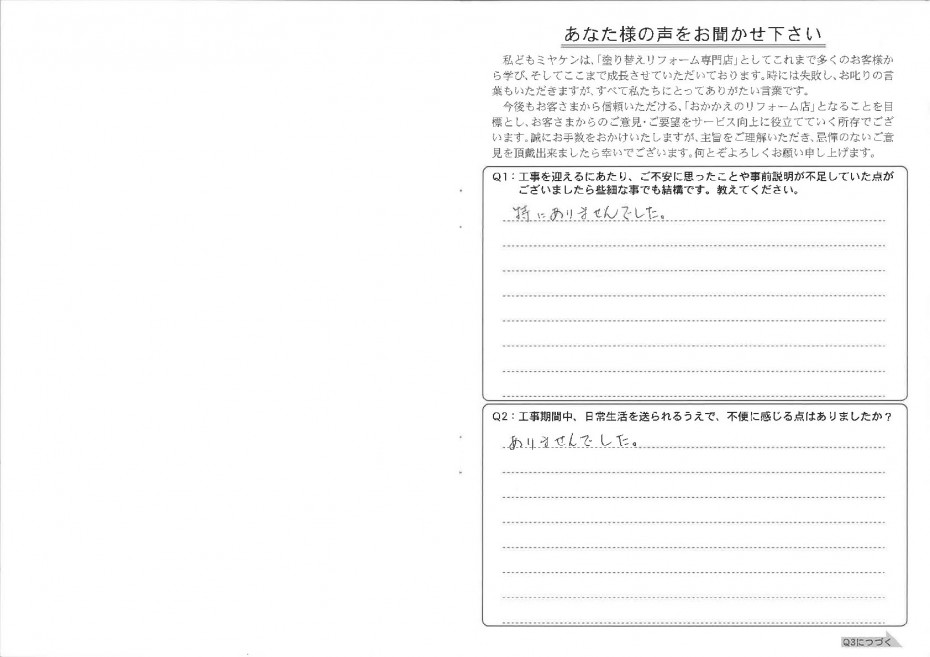 あなた様の声をお聞かせ下さい
私どもミヤケンは、「塗り替えリフォーム専門店」としてこれまで多くのお客様か
ら学び、そしてここまで成長させていただいております。時には失敗し、お叱りの言
葉もいただきますが、すべて私たちにとってありがたい言葉です。
今後もお客さまから信頼いただける、「おかかえのリフォーム店」となることを目
標とし、お客さまからのご意見・ご要望をサービス向上に役立てていく所存でござ
います。誠にお手数をおかけいたしますが、主旨をご理解いただき、忌憚のないご意
見を頂戴出来ましたら幸いでございます。何とぞよろしくお願い申し上げます。
Q1：工事を迎えるにあたり、ご不安に思ったことや事前説明が不足していた点が
ございましたら些細な事でも結構です。教えてください。
特にありませんでした。
Q2：工事期間中、日常生活を送られるうえで、不便に感じる点はありましたか？
ありませんでした。
Q3につづく